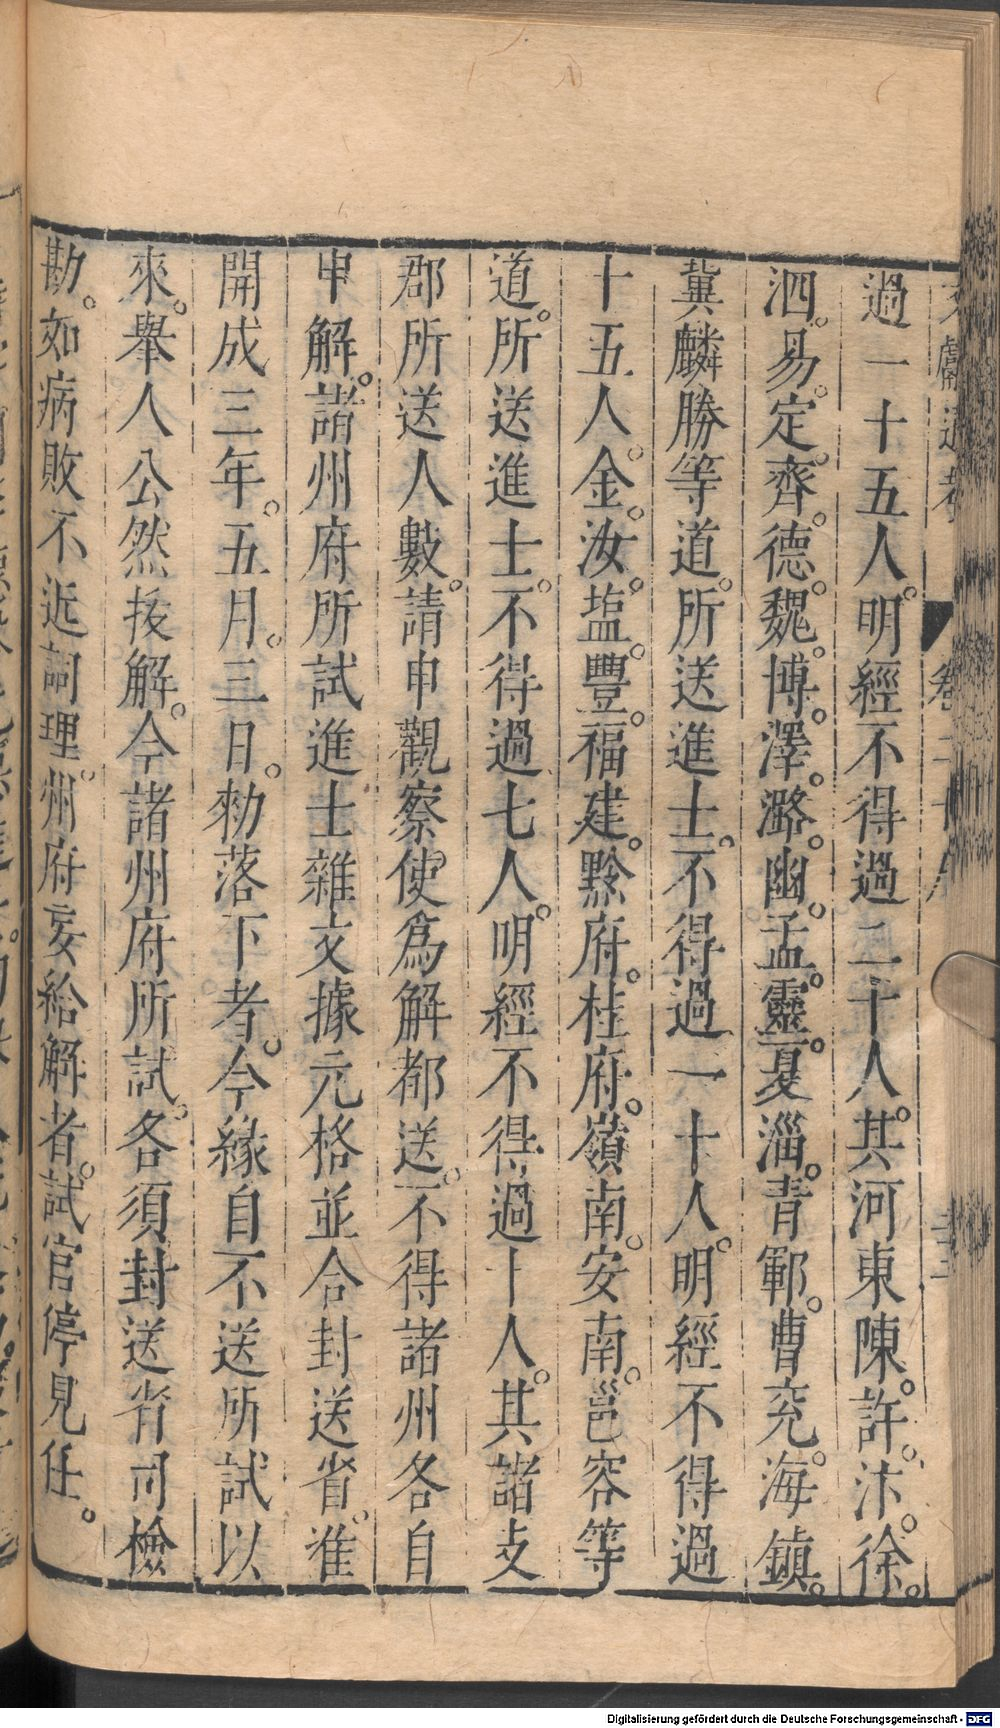 過一十五人。明經不得過二十人。其河東陳。許。汴。徐。
泗。易。定。齊。德。魏。博。澤。潞。幽。孟。靈。夏淄。青鄆。曹兗。海鎮。
冀麟勝等道。所送進士。不得過一十人。明經不得過
十五人。金。汝。塩。豐。福建。黔府。桂府。嶺南。安南。邕容等
道。所送進士。不得過七人。明經不得過十人。其諸支
郡所送人數。請申觀察使爲解都送。不得諸州各自
申解。諸州府所試進士雜文據元格並合封送省。准
開成三年。五月。三日。勑落下者。今緣自不送所試以
來。舉人公然拔解。今諸州府所試。各須封送省司檢
勘。如病敗不近詞理。州府妄給解者。試官停見任。
Digitalisierung gefördert durch die Deutsche Forschungsgemeinschaft - DFG